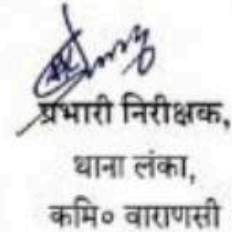 प्रभारी निरीक्षक,
थाना लंका,
कमि० वाराणसी